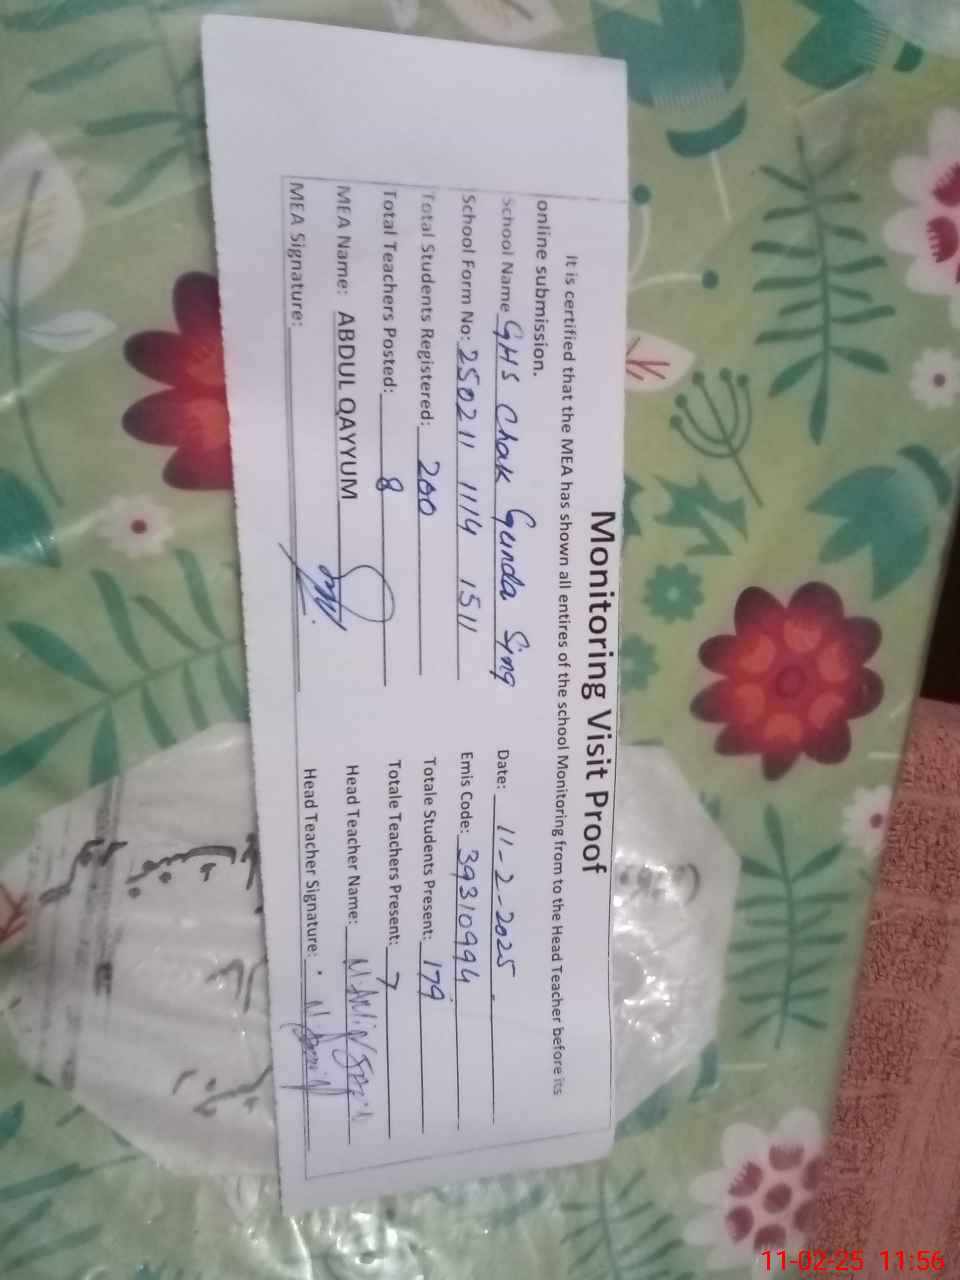 Monitoring Visit Proof
It is certified that the MEA has shown all entires of the school Monitoring from to the Head Teacher before its
online submission.
School Name GHS Chak Gunda Sing Date: 11-2-2025
School Form No: 250211 1114 1511 Emis Code: 39310994
Total Students Registered: 200 Totale Students Present: 179
Total Teachers Posted: 8 Totale Teachers Present: 7
MEA Name: ABDUL QAYYUM Head Teacher Name:
MEA Signature: Head Teacher Signature:
11-02-25 11:56